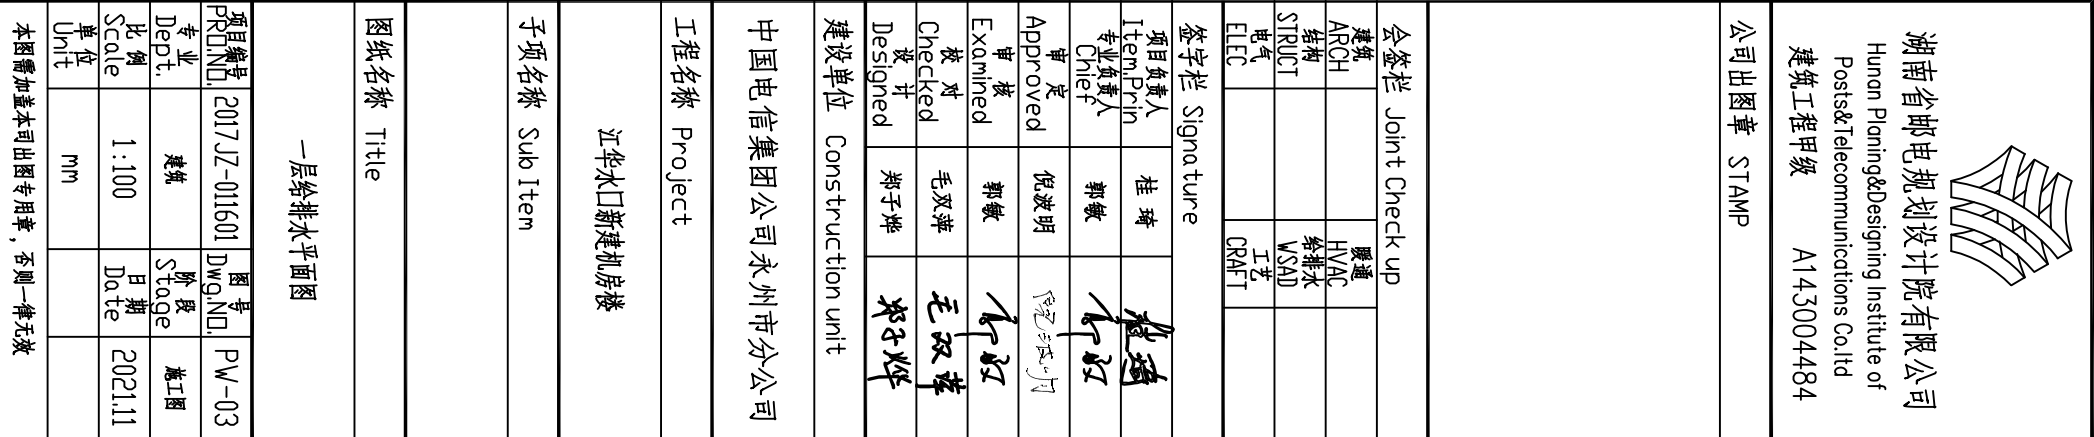 湖南省邮电规划设计院有限公司
Hunan Planing&Designing Institute of
Posts&Telecommunications Co.ltd
建筑工程甲级 A143004484
公司出图章 STAMP
会签栏 Joint Check up
建筑 ARCH 暖通 HVAC
结构 STRUCT 给排水 WSAD
电气 ELEC 工艺 CRAFT
签字栏 Signature
项目负责人 Item.Prin 桂琦
专业负责人 Chief 郭敏 郭敏
审定 Approved 倪波明 倪波明
审核 Examined 郭敏 郭敏
校对 Checked 毛双萍 毛双萍
设计 Designed 郑子烨 郑子烨
建设单位 Construction unit
中国电信集团公司永州市分公司
工程名称 Project
江华水口新建机房楼
子项名称 Sub Item
图纸名称 Title
一层给排水平面图
项目编号 PRO.NO. 2017.JZ-011601 图号 Dwg.NO. PW-03
专业 Dept. 建筑 阶段 Stage 施工图
比例 Scale 1:100 日期 Date 2021.11
单位 Unit mm
本图需加盖本司出图专用章，否则一律无效